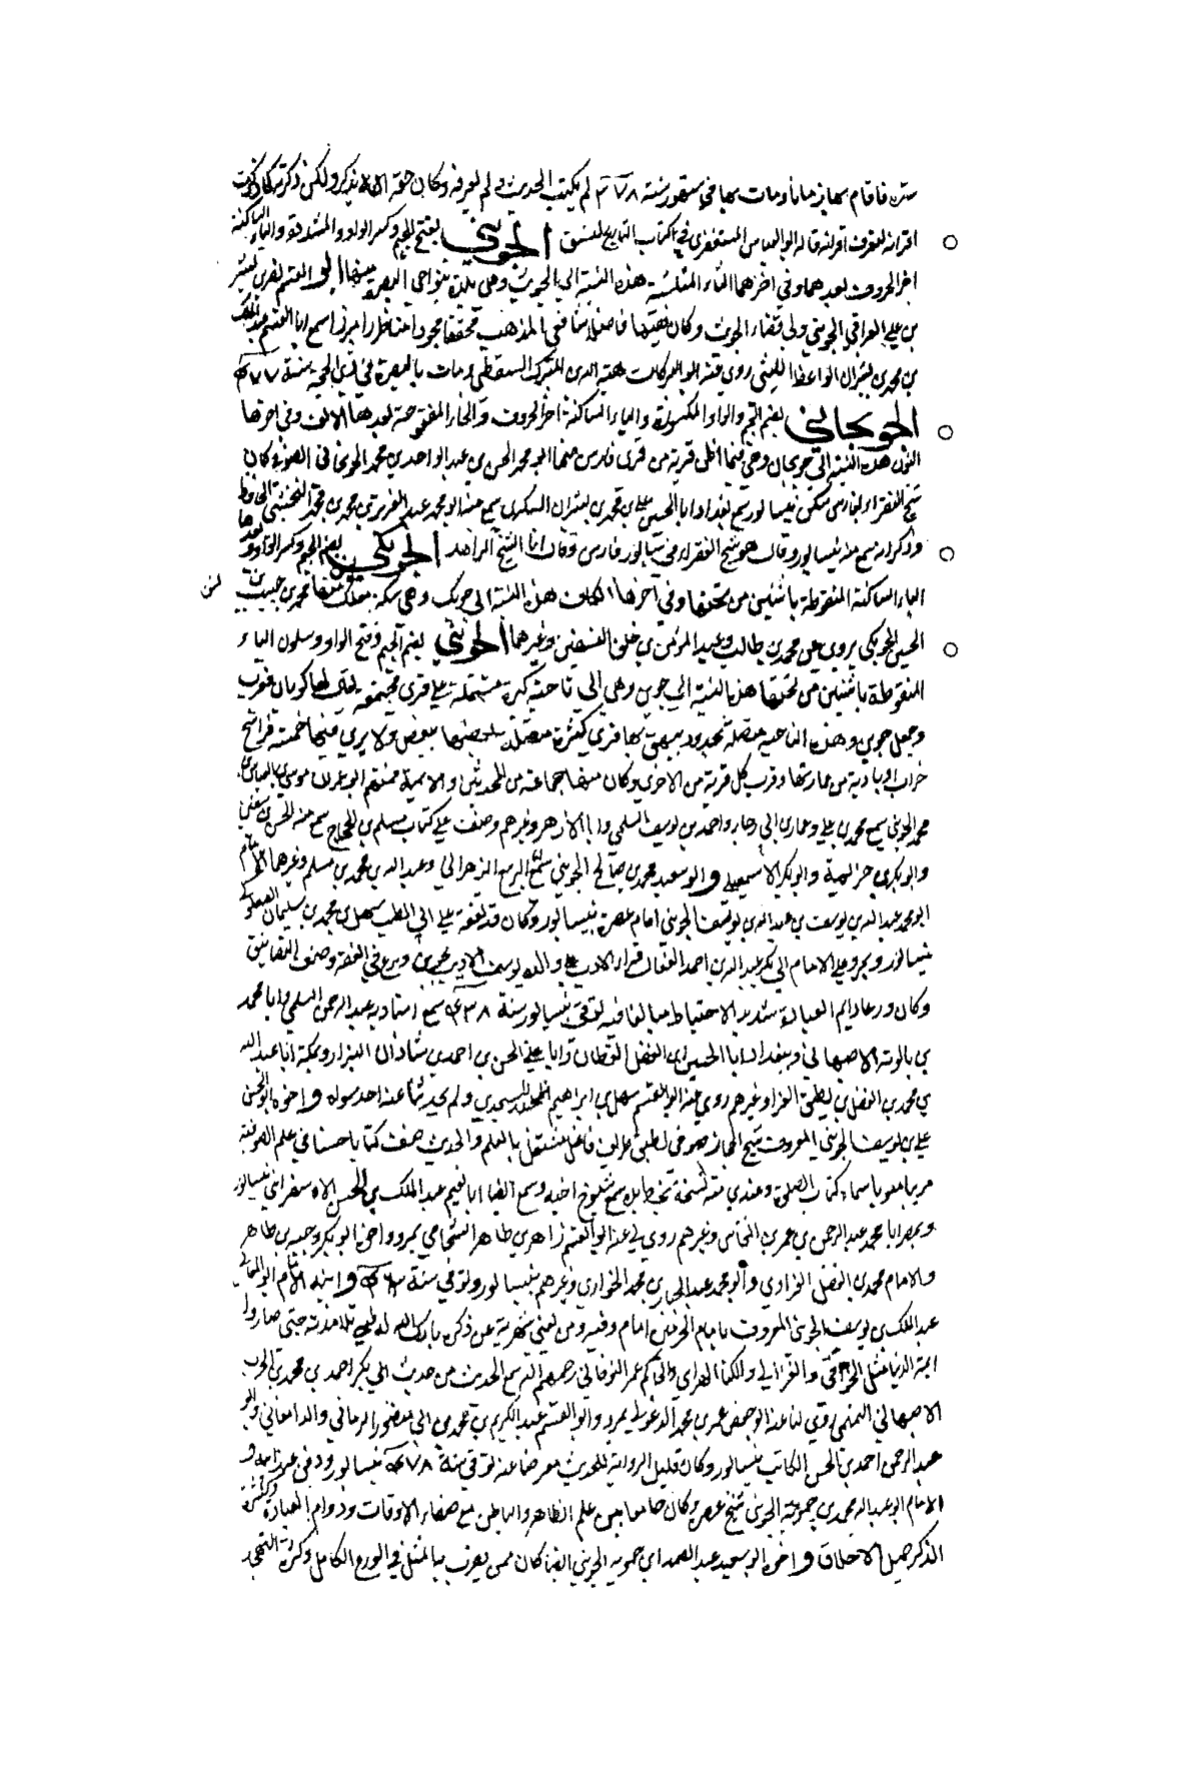 فاقام بها زمانا ومات بها في شهور سنة ٣٧٨ لم يكتب الحديث ولم يعرفه وكان حقه ان لا يذكر ولكن ذكرته كما ذكرت
اقرانه ليعرف اقرانه قاله ابو العباس المستغفري في كتاب التاريخ لنسف الجويثي بفتح الجيم وكسر الواو المشددة والياء الساكنة
اخر الحروف بعدهما وفي اخرها الثاء المثلثة هذه النسبة الى الجويث وهي بلدة بنواحي البصرة منها ابو القسم نصر بن بشر
بن علي العراقي الجويثي ولي قضاء الجويث وكان فقيها فاضلا شافعي المذهب محققا مجودا مناظرا مبرزا سمع ابا القسم عبد الملك
بن محمد بن بشران الواعظ روى عنه ابو البركات هبة الله بن المبرك السقطي ومات بالبصرة في ذي الحجة سنة ٤٧٧
الجويخاني بضم الجيم والواو المكسورة والياء الساكنة اخر الحروف والخاء المفتوحة بعدها الالف وفي اخرها
النون هذه النسبة الى جويخان وهي فيما اظن قرية من قرى فارس منها ابو محمد الحسن بن عبد الواحد بن محمد الجويخاني الصوفي كان
شيخ الفقراء بفارس سكن نيسابور سمع ببغداد ابا الحسين علي بن محمد بن بشران السكري سمع منه ابو محمد عبد العزيز بن محمد بن محمد النخشبي الحافظ
وذكر انه سمع منه بنيسابور وقال هو شيخ الفقراء في سابور فارس وقال انا الشيخ الزاهد الجويكي بضم الجيم وكسر الواو وبعدها
الياء الساكنة المنقوطة باثنتين من تحتها وفي اخرها الكاف هذه النسبة الى جويك وهي سكة بنسف منها محمد بن حبيب بن
الحسن الجويكي يروي عن محمد بن طالب وعبد المؤمن بن خلف النسفيين وغيرهما الجويني بضم الجيم وفتح الواو وسكون الياء
المنقوطة باثنتين من تحتها هذه النسبة الى جوين وهي الى ناحية كبيرة مشتملة على قرى مجتمعة يقال لها كويان فعرب
وجعل جوين وهذه الناحية متصلة بحدود بيهق بها قرى كثيرة متصلة بعضها ببعض ولا يرى فيها خمسة فراسخ
خراب او بادية من عمارتها وقرب كل قرية من الاخرى وكان منها جماعة من المحدثين والائمة فمنهم ابو عمران موسى بن العباس بن
محمد الجويني سمع محمد بن علي وعمار بن رجاء واحمد بن يوسف السلمي وابا الازهر وغيرهم وصنف على كتاب مسلم بن الحجاج سمع منه الحسن بن سفين
وابو بكر بن خزيمة وابو بكر الاسمعيلي وابو سعيد محمد بن صالح الجويني سمع ابا الربيع الزهراني وعبد الله بن محمد بن مسلم وغيرهما والامام
ابو محمد عبد الله بن يوسف بن عبد الله بن يوسف الجويني امام عصره بنيسابور وكان قد تفقه على ابي الطيب سهل بن محمد بن سليمان الصعلوكي
بنيسابور وبمرو على الامام ابي بكر عبد الله بن احمد القفال قرأ الادب على والده يوسف الاديب بجوين وبرع في الفقه وصنف التصانيف
وكان ورعا دايم العبادة شديد الاحتياط مبالغا فيه توفي بنيسابور سنة ٤٣٨ سمع استاذيه عبد الرحمن السلمي وابا محمد
بن بالويه الاصبهاني وببغداد ابا الحسين بن الفضل القطان وابا علي الحسن بن احمد بن شاذان البزار وبمكة ابا عبد الله
بن محمد بن الفضل بن نظيف الفراء وغيرهم روى عنه ابو القسم سهل بن ابراهيم المسجدي ولم يحدثنا عنه احد سواه واخوه ابو الحسن
علي بن يوسف الجويني المعروف بشيخ الحجاز صوفي لطيف ظريف فاضل مشتغل بالعلم والحديث صنف كتابا حسنا في علم الصوفية
مرتبا مبوبا سماه كتاب السلوة وعندي منه نسخة بخطه سمع شيوخ اخيه وسمع ايضا ابا نعيم عبد الملك بن الحسن الاسفرايني بنيسابور
وبمصر ابا محمد عبد الرحمن بن عمر بن النحاس وغيرهم روى لي عنه ابو القسم زاهر بن طاهر الشحامي بمرو واخوه ابو بكر وجيه بن طاهر
والامام محمد بن الفضل الفراوي وابو محمد عبد الجبار بن محمد الخواري وغيرهم بنيسابور وتوفي في سنة ٤٦٣ وابنه الامام ابو المعالي
عبد الملك بن يوسف الجويني المعروف بامام الحرمين امام وقته ومن تغني شهرته عن ذكره بارك الله له في تلامذته حتى صاروا
ايمة الدنيا مثل الخوافي والغزالي والكيا الهراسي والحاكم عمر النوقاني رحمهم الله سمع الحديث من حديث ابي بكر احمد بن محمد بن الحرث
الاصبهاني التميمي روى لنا عنه ابو حفص عمر بن محمد بمرو وابو القسم عبد الكريم بن محمد بن ابي منصور الرماني والدامغاني وابو
عبد الرحمن احمد بن الحسن الكاتب بنيسابور وكان قليل الرواية للحديث معرضا عنه توفي سنة ٤٧٨ بنيسابور ودفن و
الامام ابو عبد الله محمد بن حمويه الجويني شيخ عصره وكان جامعا بين علم الظاهر والباطن مع صفاء الاوقات ودوام العبادة وكثرة
الذكر جميل الاخلاق واخوه ابو سعيد عبد الصمد بن حمويه الجويني ايضا كان ممن يضرب به المثل في الورع الكامل وكثرة التهجد